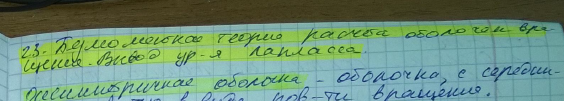 23. Безмоментная теория расчёта оболочек вра-
щения. Вывод ур-я Лапласса.
Осисимметричная оболочка - оболочка, с средин-
в виде пов-ти вращения.